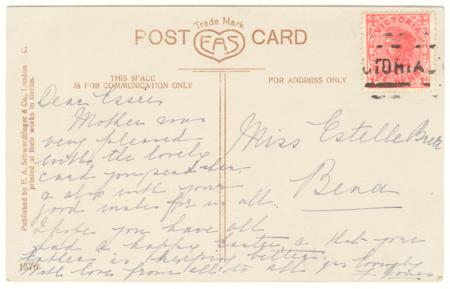 Trade Mark
POST CARD
EAS
THIS SPACE
IS FOR COMMUNICATION ONLY
FOR ADDRESS ONLY
VICTORIA
TORIA
Published by E. A. Schwerdtfeger & Co., London E. C.
printed at their works in Berlin.
Dear Essie
Mother was
very pleased
with the lovely
card you send her
& also with your
good wishes for us all.
I hope you have all
had a happy Easter & that your
Father is sleeping better.
With love from all to all yrs lovingly
Miss Estelle
Bena